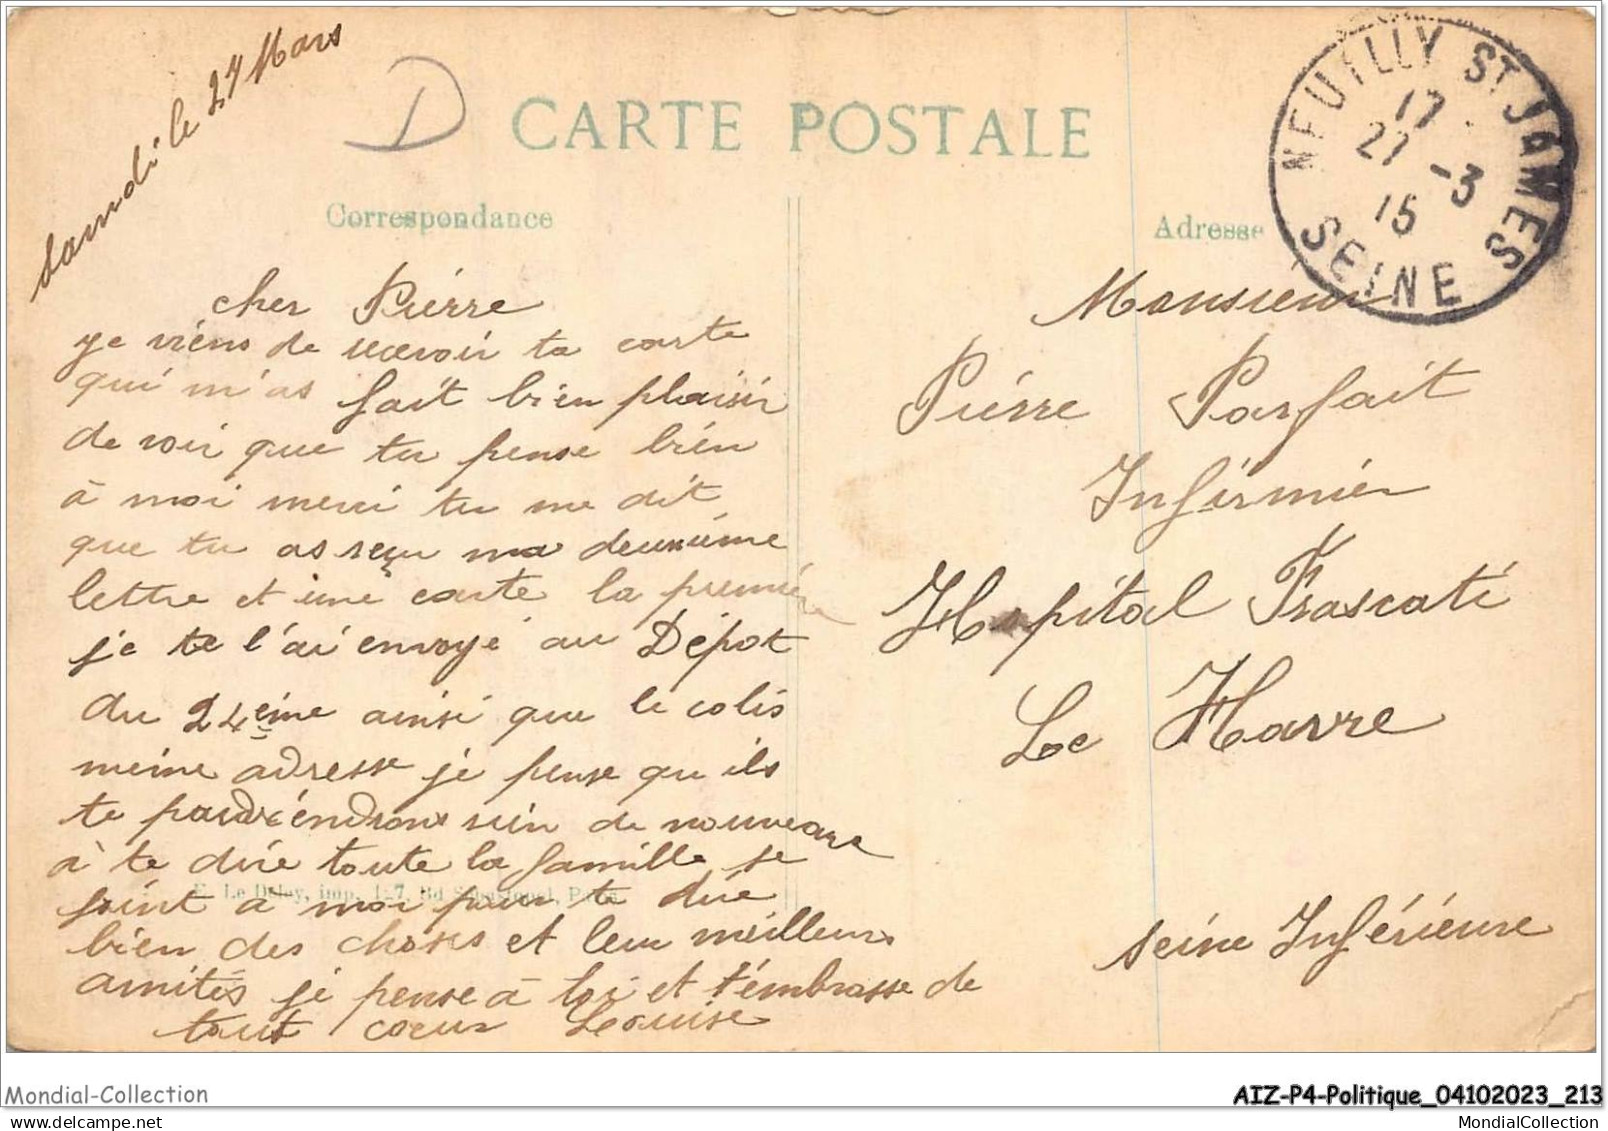 Samdi le 27 Mars
D
CARTE POSTALE
Correspondance
Adresse
NEUILLY ST JAMES
17
27 -3
15
SEINE
cher Pierre
je viens de recevoir ta carte
qui m'as fait bien plaisir
de voir que tu pense bien
à moi merci tu me dit
que tu as reçu ma deuxième
lettre et une carte la première
je te l'ai envoyé au Dépot
du 24ème ainsi que le colis
meme adresse je pense qu ils
te parviendront rien de nouveau
à te dire toute la famille se
joint a moi pour te dire
bien des choses et leur meilleurs
amités je pense à toi et t'émbrasse de
tout coeur Louise
E. Le Deley, imp., 127, Bd Sébastopol, Paris
Monsieur
Piérre Parfait
Infirmier
Hopital Frascati
Le Havre
Seine Inférieure
Mondial-Collection
AIZ-P4-Politique_04102023_213
MondialCollection